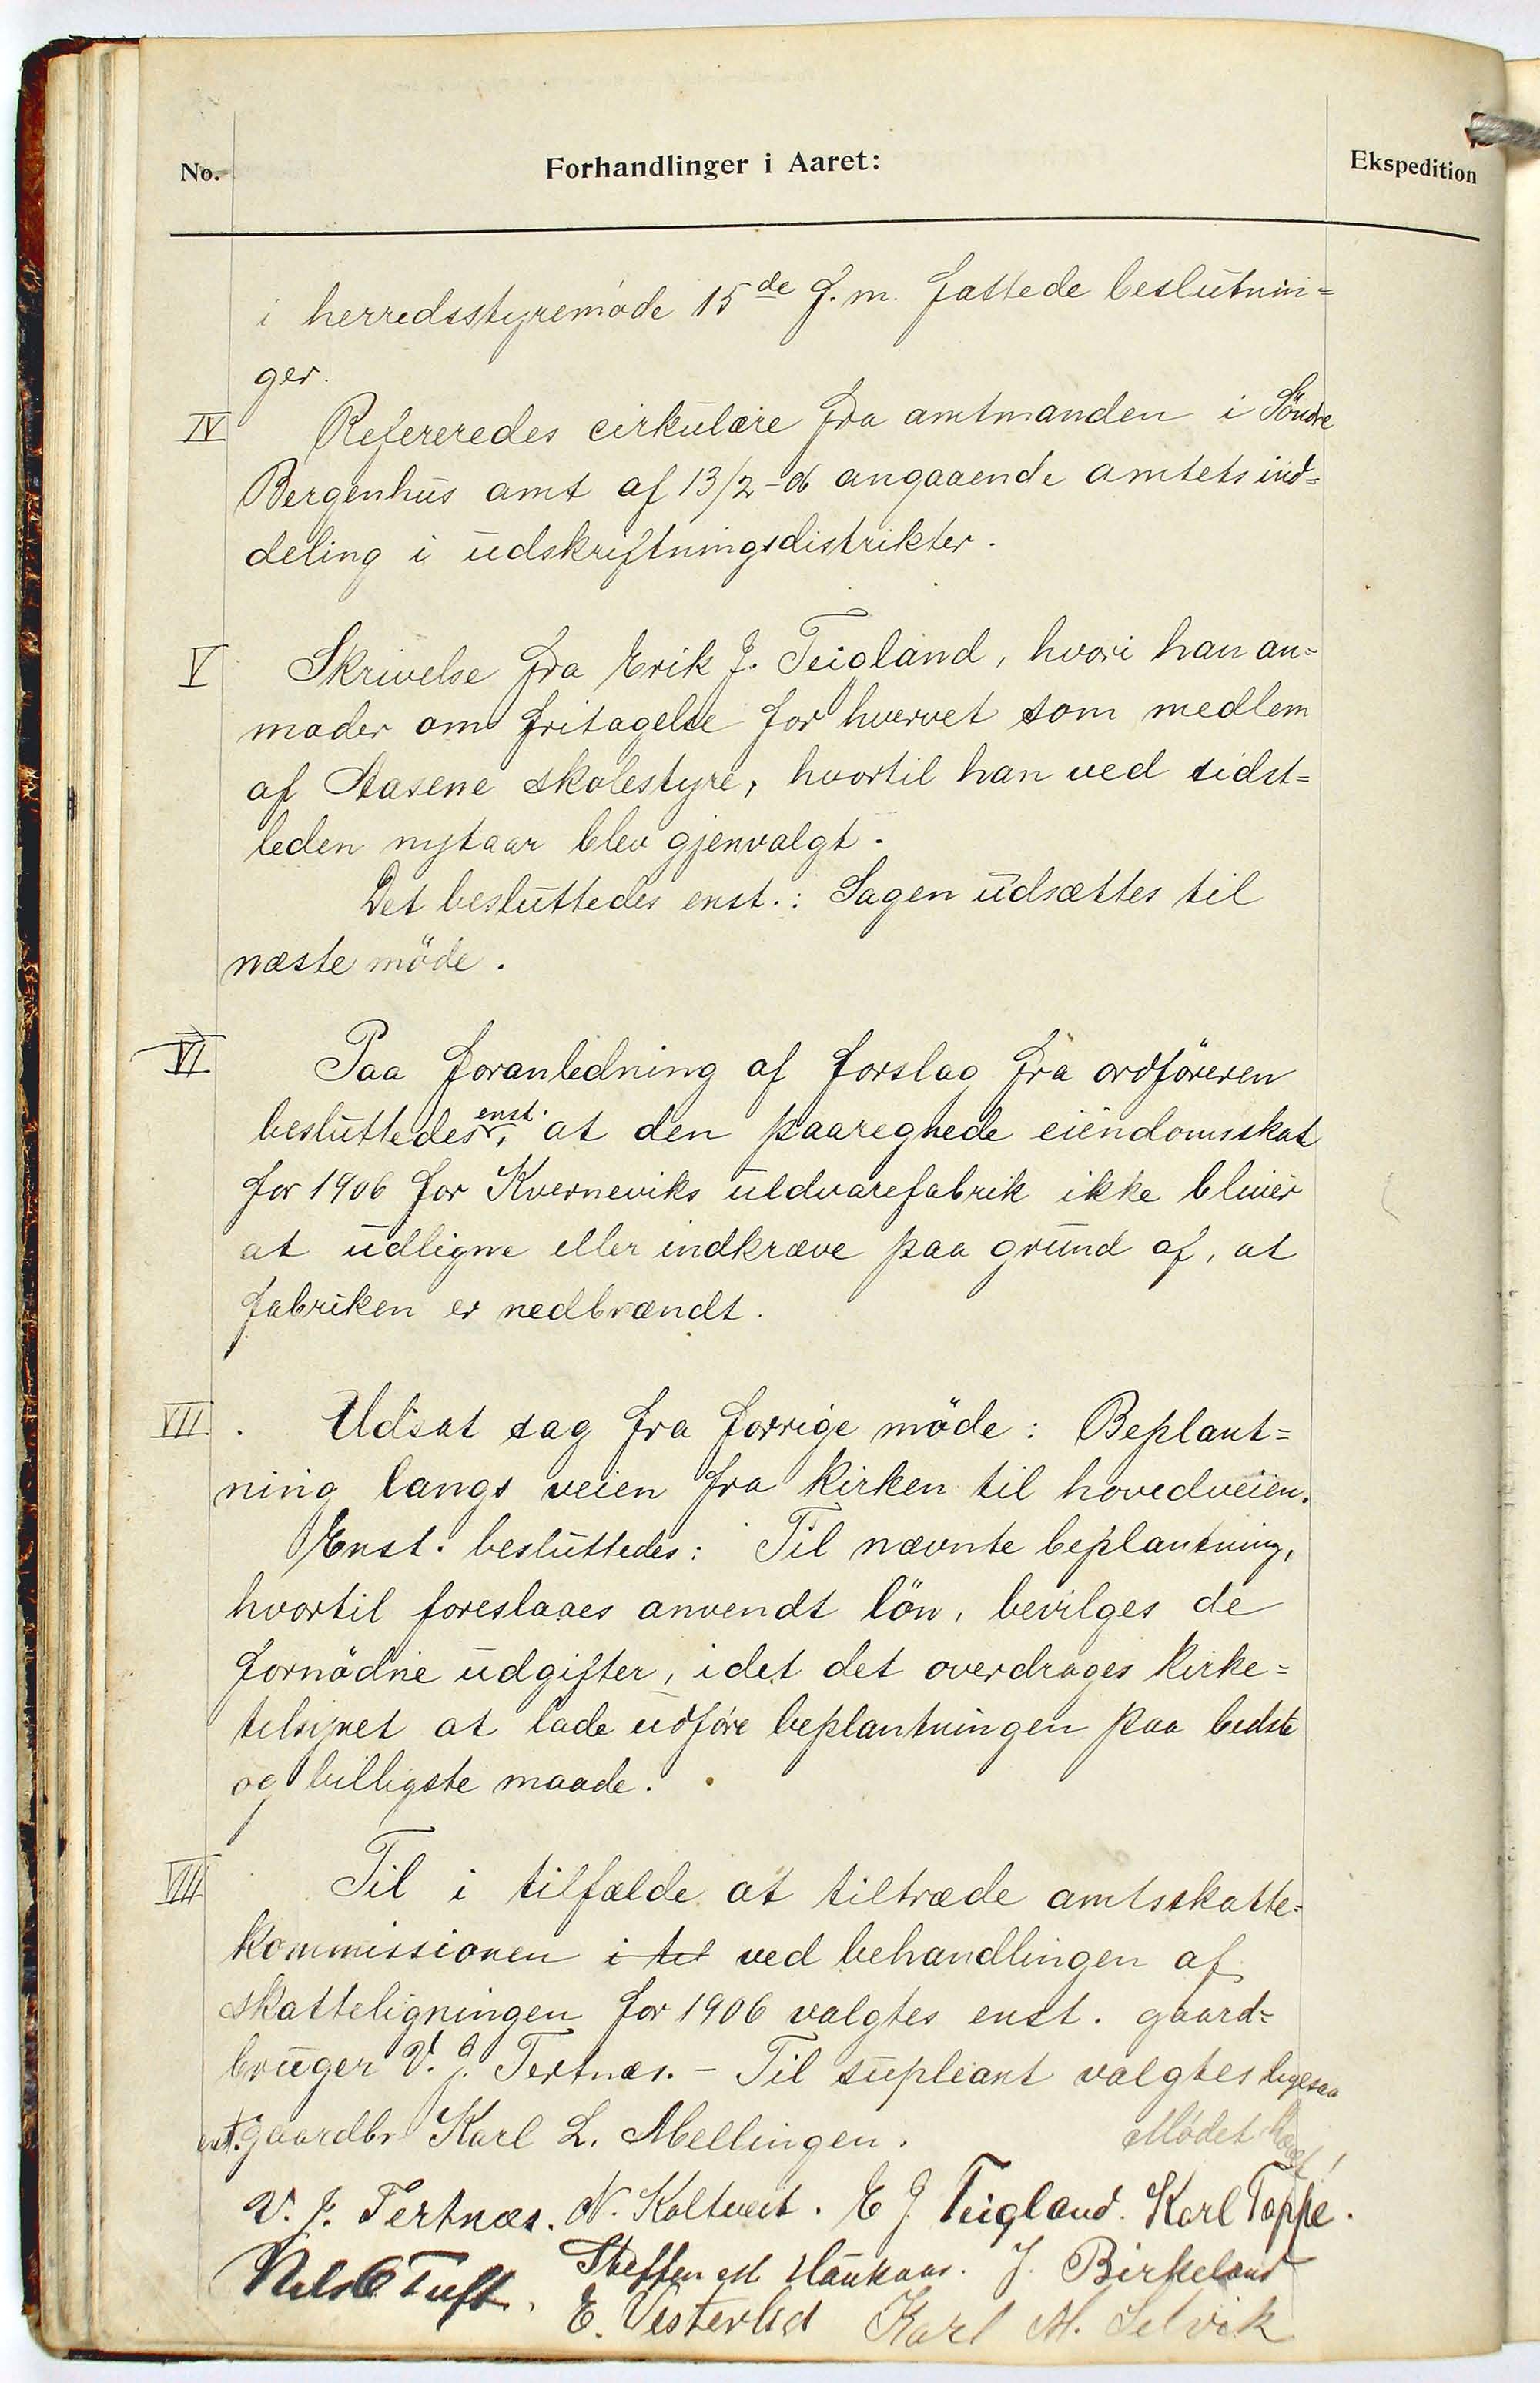 No. Forhandlinger i Aaret: Ekspedition
i herredsstyremøde 15de f. m. fattede beslutnin=
ger.
IV Refereredes cirkulære fra amtmanden i Söndre
Bergenhus amt af 13/2-06 angaaende amtets ind=
deling i udskriftningsdistrikter.
V Skrivelse fra Erik J. Teigland, hvori han an=
moder om fritagelse for hvervet som medlem
af Aasene skolestyre, hvortil han ved sidst=
leden nytaar blev gjenvalgt.
Det besluttedes enst.: Sagen udsættes til
næste möde.
VI Paa foranledning af forslag fra ordföreren
besluttedes enst., at den paaregnede eiendomsskat
for 1906 for Kverneviks uldvarefabrik ikke bliver
at udligne eller indkræve paa grund af, at
fabriken er nedbrændt.
VII. Udsat sag fra forrige möde: Beplant=
ning langs veien fra kirken til hovedveien.
Enst. besluttedes: Til nævnte beplantning,
hvortil foreslaaes anvendt lön, bevilges de
fornödne udgifter, idet det overdrages kirke=
tilsynet at lade udföre beplantningen paa bedste
og billigste maade.
VIII Til i tilfælde at tiltræde amtsskatte=
kommissionen i til ved behandlingen af
skatteligningen for 1906 valgtes enst. gaard=
bruger V. J. Tertnæs. - Til supleant valgtes ligesaa
enst. gaardbr Karl L. Mellingen. Mødet hævet!
V. J. Tertnæs. N. Koltveit. E J Teigland. Karl Toppe.
Nels O Tuft. Steffen M Haukaas. J. Birkeland
E. Vesterlid Karl M. Selvik